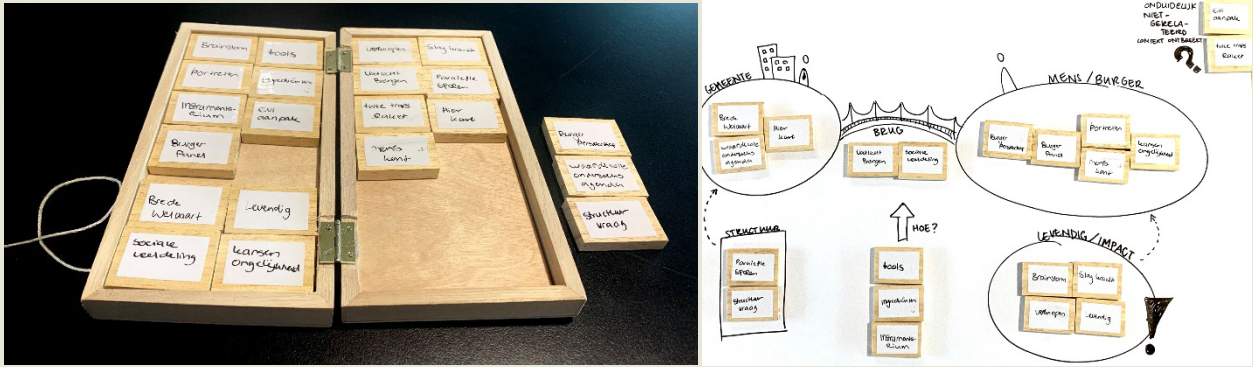 Brainstorm
tools
Portretten
Ingrediënten
Instrumen-
tarium
E.U.
aanpak
Burger
Panel
Brede
Welvaart
Levendig
Sociale
verdeling
kansen
ongelijkheid
Verknopen
Slag kracht
Veelzicht
Borgen
Parallelle
Sporen
twee traps
Raket
Hier
kant
mens
kant
Burger
Perspectief
waardevolle
onderzoeks
agenda
Structuur
vraag
GEMEENTE
Brede
Welvaart
Hier
kant
waardevolle
onderzoeks
agenda
BRUG
Borgen
Sociale
verdeling
MENS / BURGER
Burger
Perspectief
Burger
Panel
Portretten
mens
kant
kansen
ongelijkheid
ONDUIDELIJK
NIET-
GERELA-
TEERD
CONTEXT ONTBREEKT
?
aanpak
twee traps
Raket
STRUCTUUR
Parallelle
Sporen
Structuur
vraag
HOE?
tools
Ingrediënten
Instrumen-
tarium
LEVENDIG / IMPACT
Brainstorm
Slag kracht
Verknopen
Levendig
!